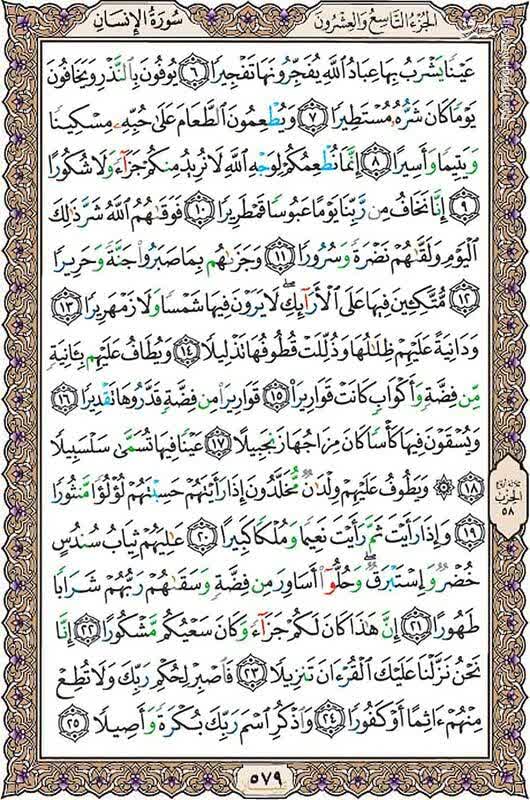 الجُزْءُ التَّاسِعُ وَالعِشْرُونَ سُورَةُ الإِنسَانِ
عَيْنًا يَشْرَبُ بِهَا عِبَادُ اللَّهِ يُفَجِّرُونَهَا تَفْجِيرًا ٦ يُوفُونَ بِالنَّذْرِ وَيَخَافُونَ
يَوْمًا كَانَ شَرُّهُ مُسْتَطِيرًا ٧ وَيُطْعِمُونَ الطَّعَامَ عَلَىٰ حُبِّهِ مِسْكِينًا
وَيَتِيمًا وَأَسِيرًا ٨ إِنَّمَا نُطْعِمُكُمْ لِوَجْهِ اللَّهِ لَا نُرِيدُ مِنكُمْ جَزَآءً وَلَا شُكُورًا
٩ إِنَّا نَخَافُ مِن رَّبِّنَا يَوْمًا عَبُوسًا قَمْطَرِيرًا ١٠ فَوَقَىٰهُمُ اللَّهُ شَرَّ ذَٰلِكَ
الْيَوْمِ وَلَقَّىٰهُمْ نَضْرَةً وَسُرُورًا ١١ وَجَزَىٰهُم بِمَا صَبَرُوا۟ جَنَّةً وَحَرِيرًا
١٢ مُّتَّكِـِٔينَ فِيهَا عَلَى الْأَرَآئِكِ ۖ لَا يَرَوْنَ فِيهَا شَمْسًا وَلَا زَمْهَرِيرًا ١٣
وَدَانِيَةً عَلَيْهِمْ ظِلَٰلُهَا وَذُلِّلَتْ قُطُوفُهَا تَذْلِيلًا ١٤ وَيُطَافُ عَلَيْهِم بِـَٔانِيَةٍ
مِّن فِضَّةٍ وَأَكْوَابٍ كَانَتْ قَوَارِيرَا۠ ١٥ قَوَارِيرَا۟ مِن فِضَّةٍ قَدَّرُوهَا تَقْدِيرًا ١٦
وَيُسْقَوْنَ فِيهَا كَأْسًا كَانَ مِزَاجُهَا زَنجَبِيلًا ١٧ عَيْنًا فِيهَا تُسَمَّىٰ سَلْسَبِيلًا
١٨ ۞ وَيَطُوفُ عَلَيْهِمْ وِلْدَٰنٌ مُّخَلَّدُونَ إِذَا رَأَيْتَهُمْ حَسِبْتَهُمْ لُؤْلُؤًا مَّنثُورًا
١٩ وَإِذَا رَأَيْتَ ثَمَّ رَأَيْتَ نَعِيمًا وَمُلْكًا كَبِيرًا ٢٠ عَٰلِيَهُمْ ثِيَابُ سُندُسٍ
خُضْرٌ وَإِسْتَبْرَقٌ ۖ وَحُلُّوٓا۟ أَسَاوِرَ مِن فِضَّةٍ وَسَقَىٰهُمْ رَبُّهُمْ شَرَابًا
طَهُورًا ٢١ إِنَّ هَٰذَا كَانَ لَكُمْ جَزَآءً وَكَانَ سَعْيُكُم مَّشْكُورًا ٢٢ إِنَّا
نَحْنُ نَزَّلْنَا عَلَيْكَ الْقُرْءَانَ تَنزِيلًا ٢٣ فَاصْبِرْ لِحُكْمِ رَبِّكَ وَلَا تُطِعْ
مِنْهُمْ ءَاثِمًا أَوْ كَفُورًا ٢٤ وَاذْكُرِ اسْمَ رَبِّكَ بُكْرَةً وَأَصِيلًا ٢٥
الحِزْب
٥٨
٥٧٩